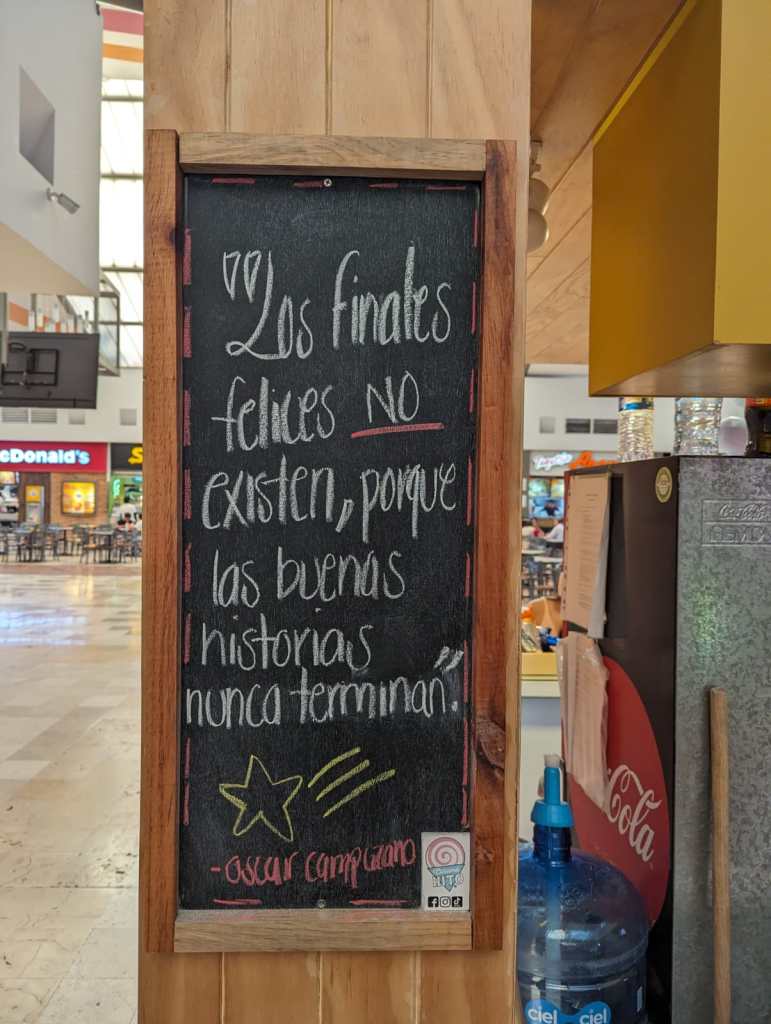 "Los finales
felices NO
existen, porque
las buenas
historias
nunca terminan".
-oscar campuzano
cDonald's
Coca-Cola
ciel
ciel